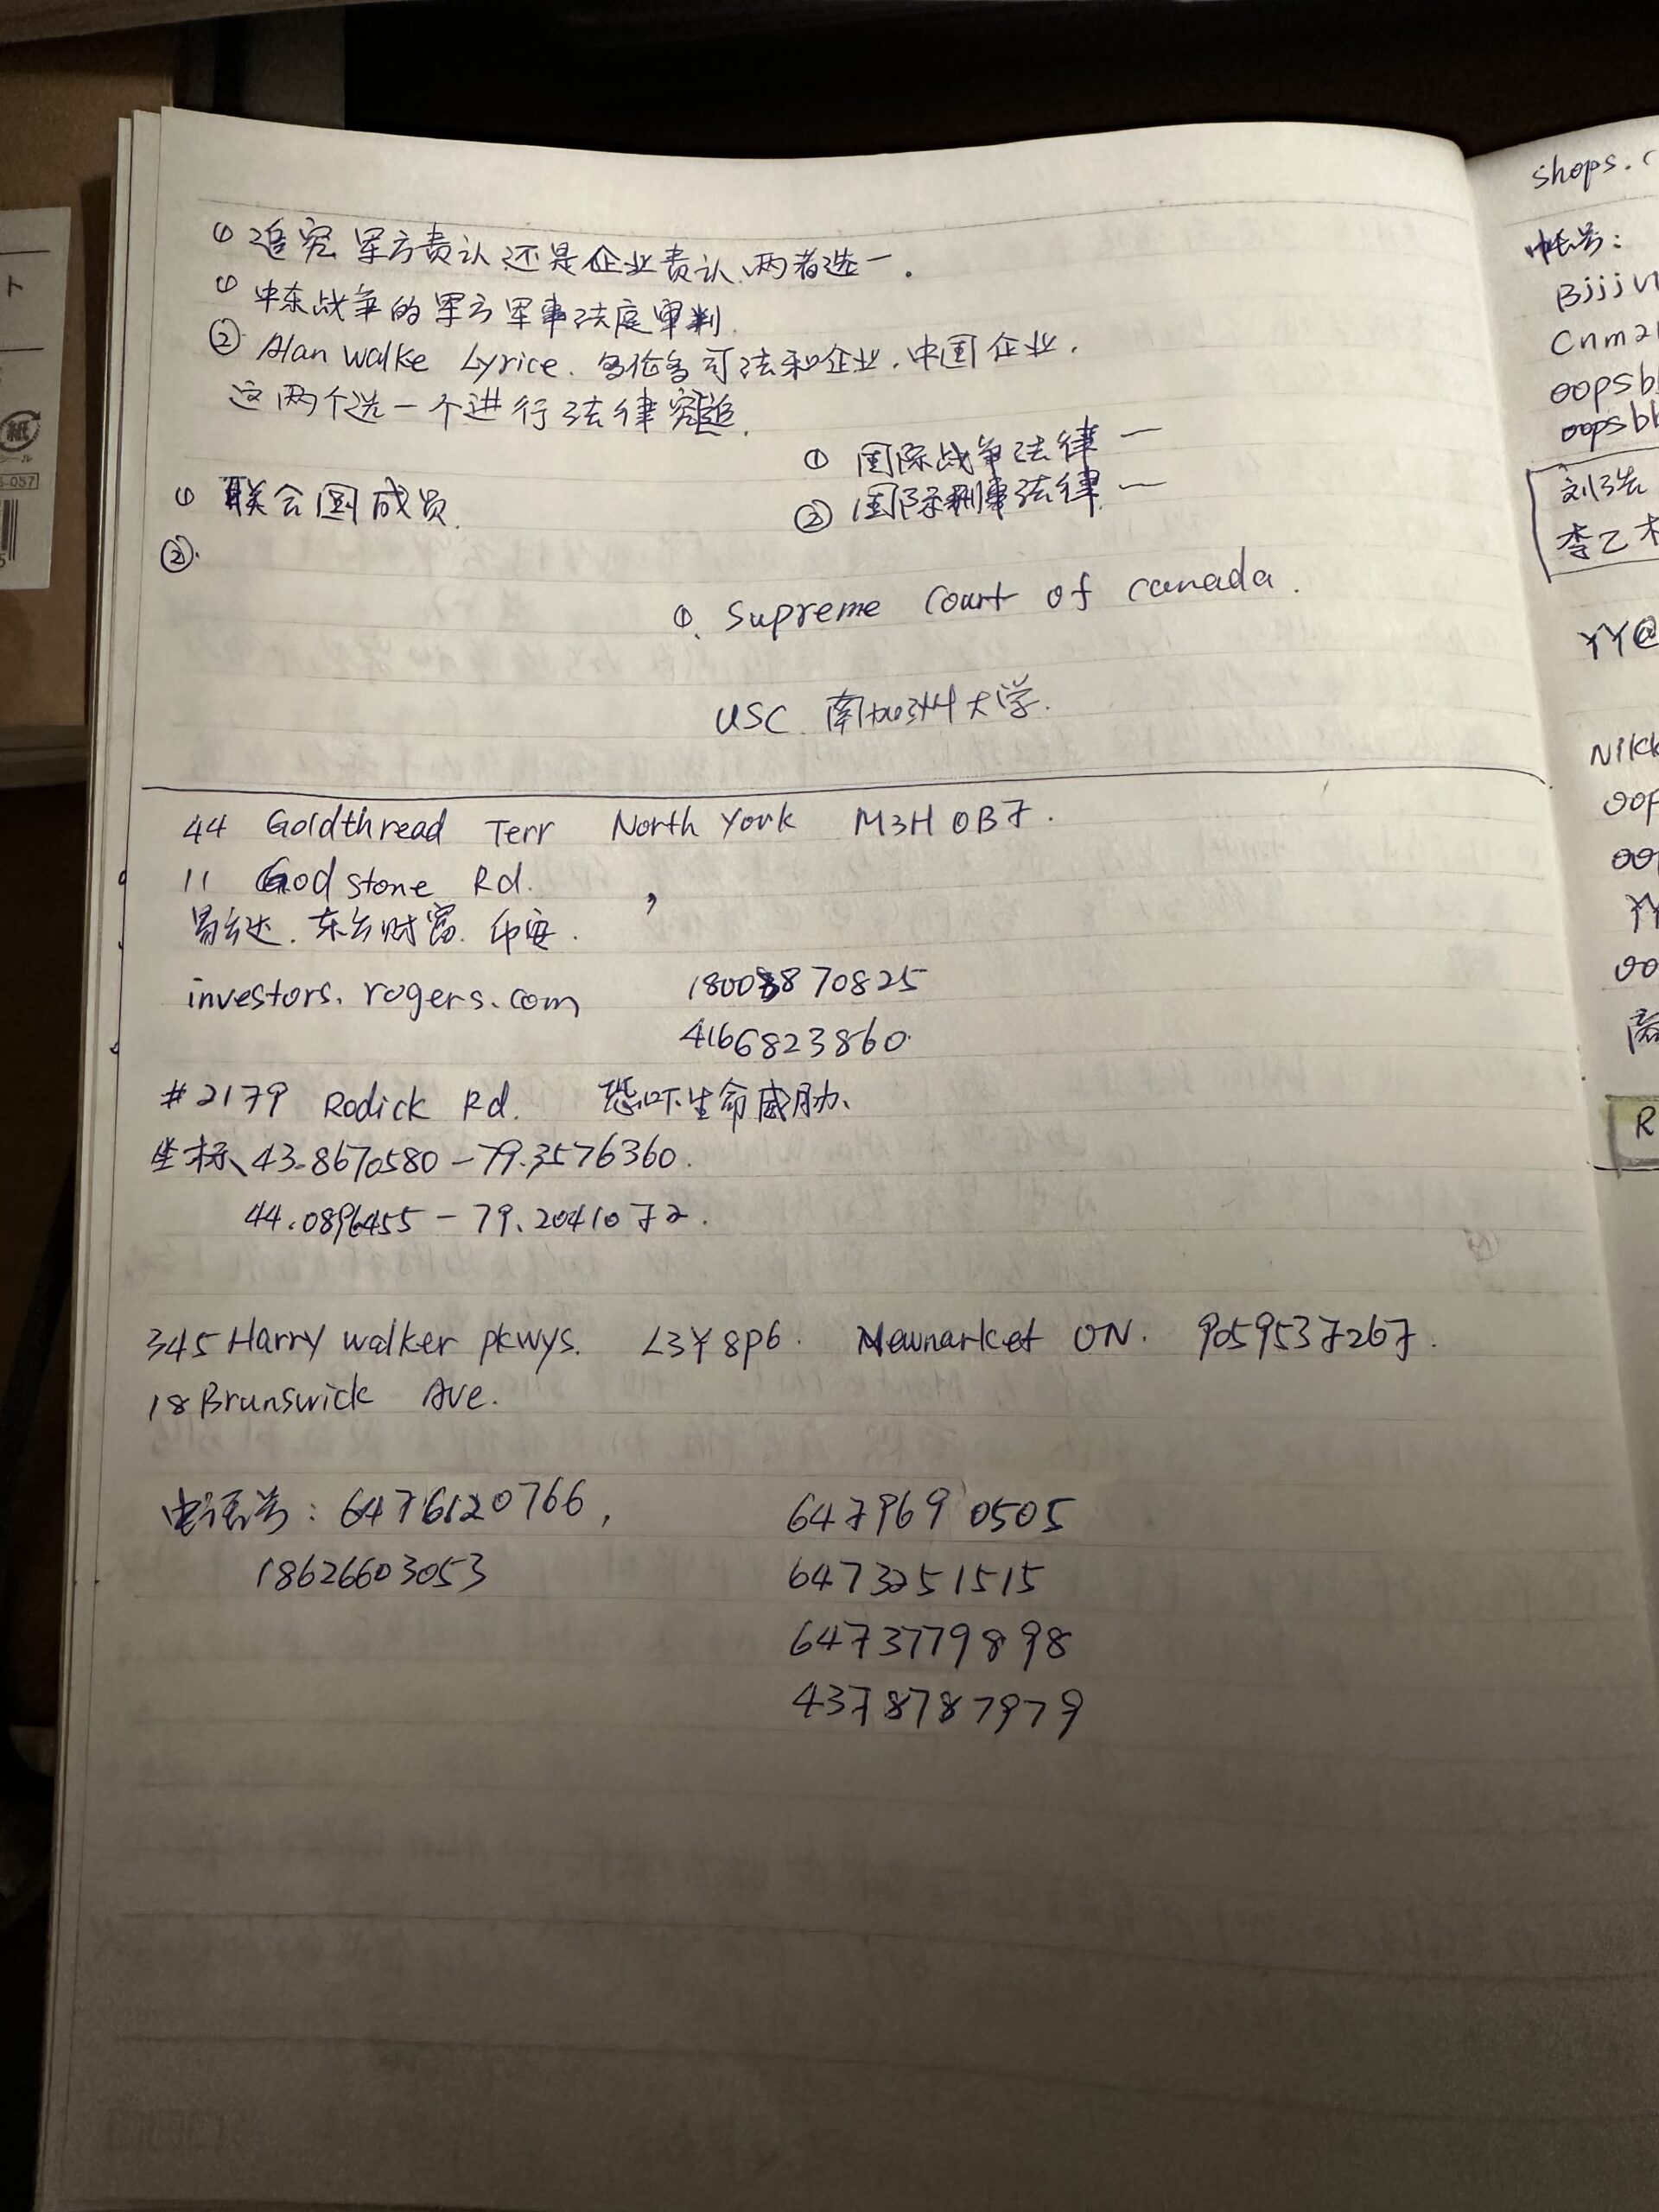 ① 追究军方责认还是企业责认、两者选一.
① 中东战争的军方军事法庭审判.
② Alan walke Lyrice. 多伦多司法和企业. 中国企业.
这两个选一个进行法律究追.
① 国际战争法律 一
② 国际刑事法律 一
① 联合国成员.
②.
①. Supreme Court of canada.
USC. 南加州大学.
44 Goldthread Terr North York M3H 0B7.
11 Godstone Rd.
易达. 东方财富. 印度.
investors.rogers.com 18008870825
4166823860.
#2179 Rodick Rd. 恐吓生命威胁、
坐标、43.8670580 -79.3576360.
44.0896455 - 79.2041072.
345 Harry walker pkwys. L3Y 8P6. Newmarket ON. 9059537267.
18 Brunswick Ave.
电话号: 6476120766, 6479690505
18626603053 6473251515
6473779898
4378787979
shops.
Bjjj
Cnm2
oopsb
oopsb
YY@